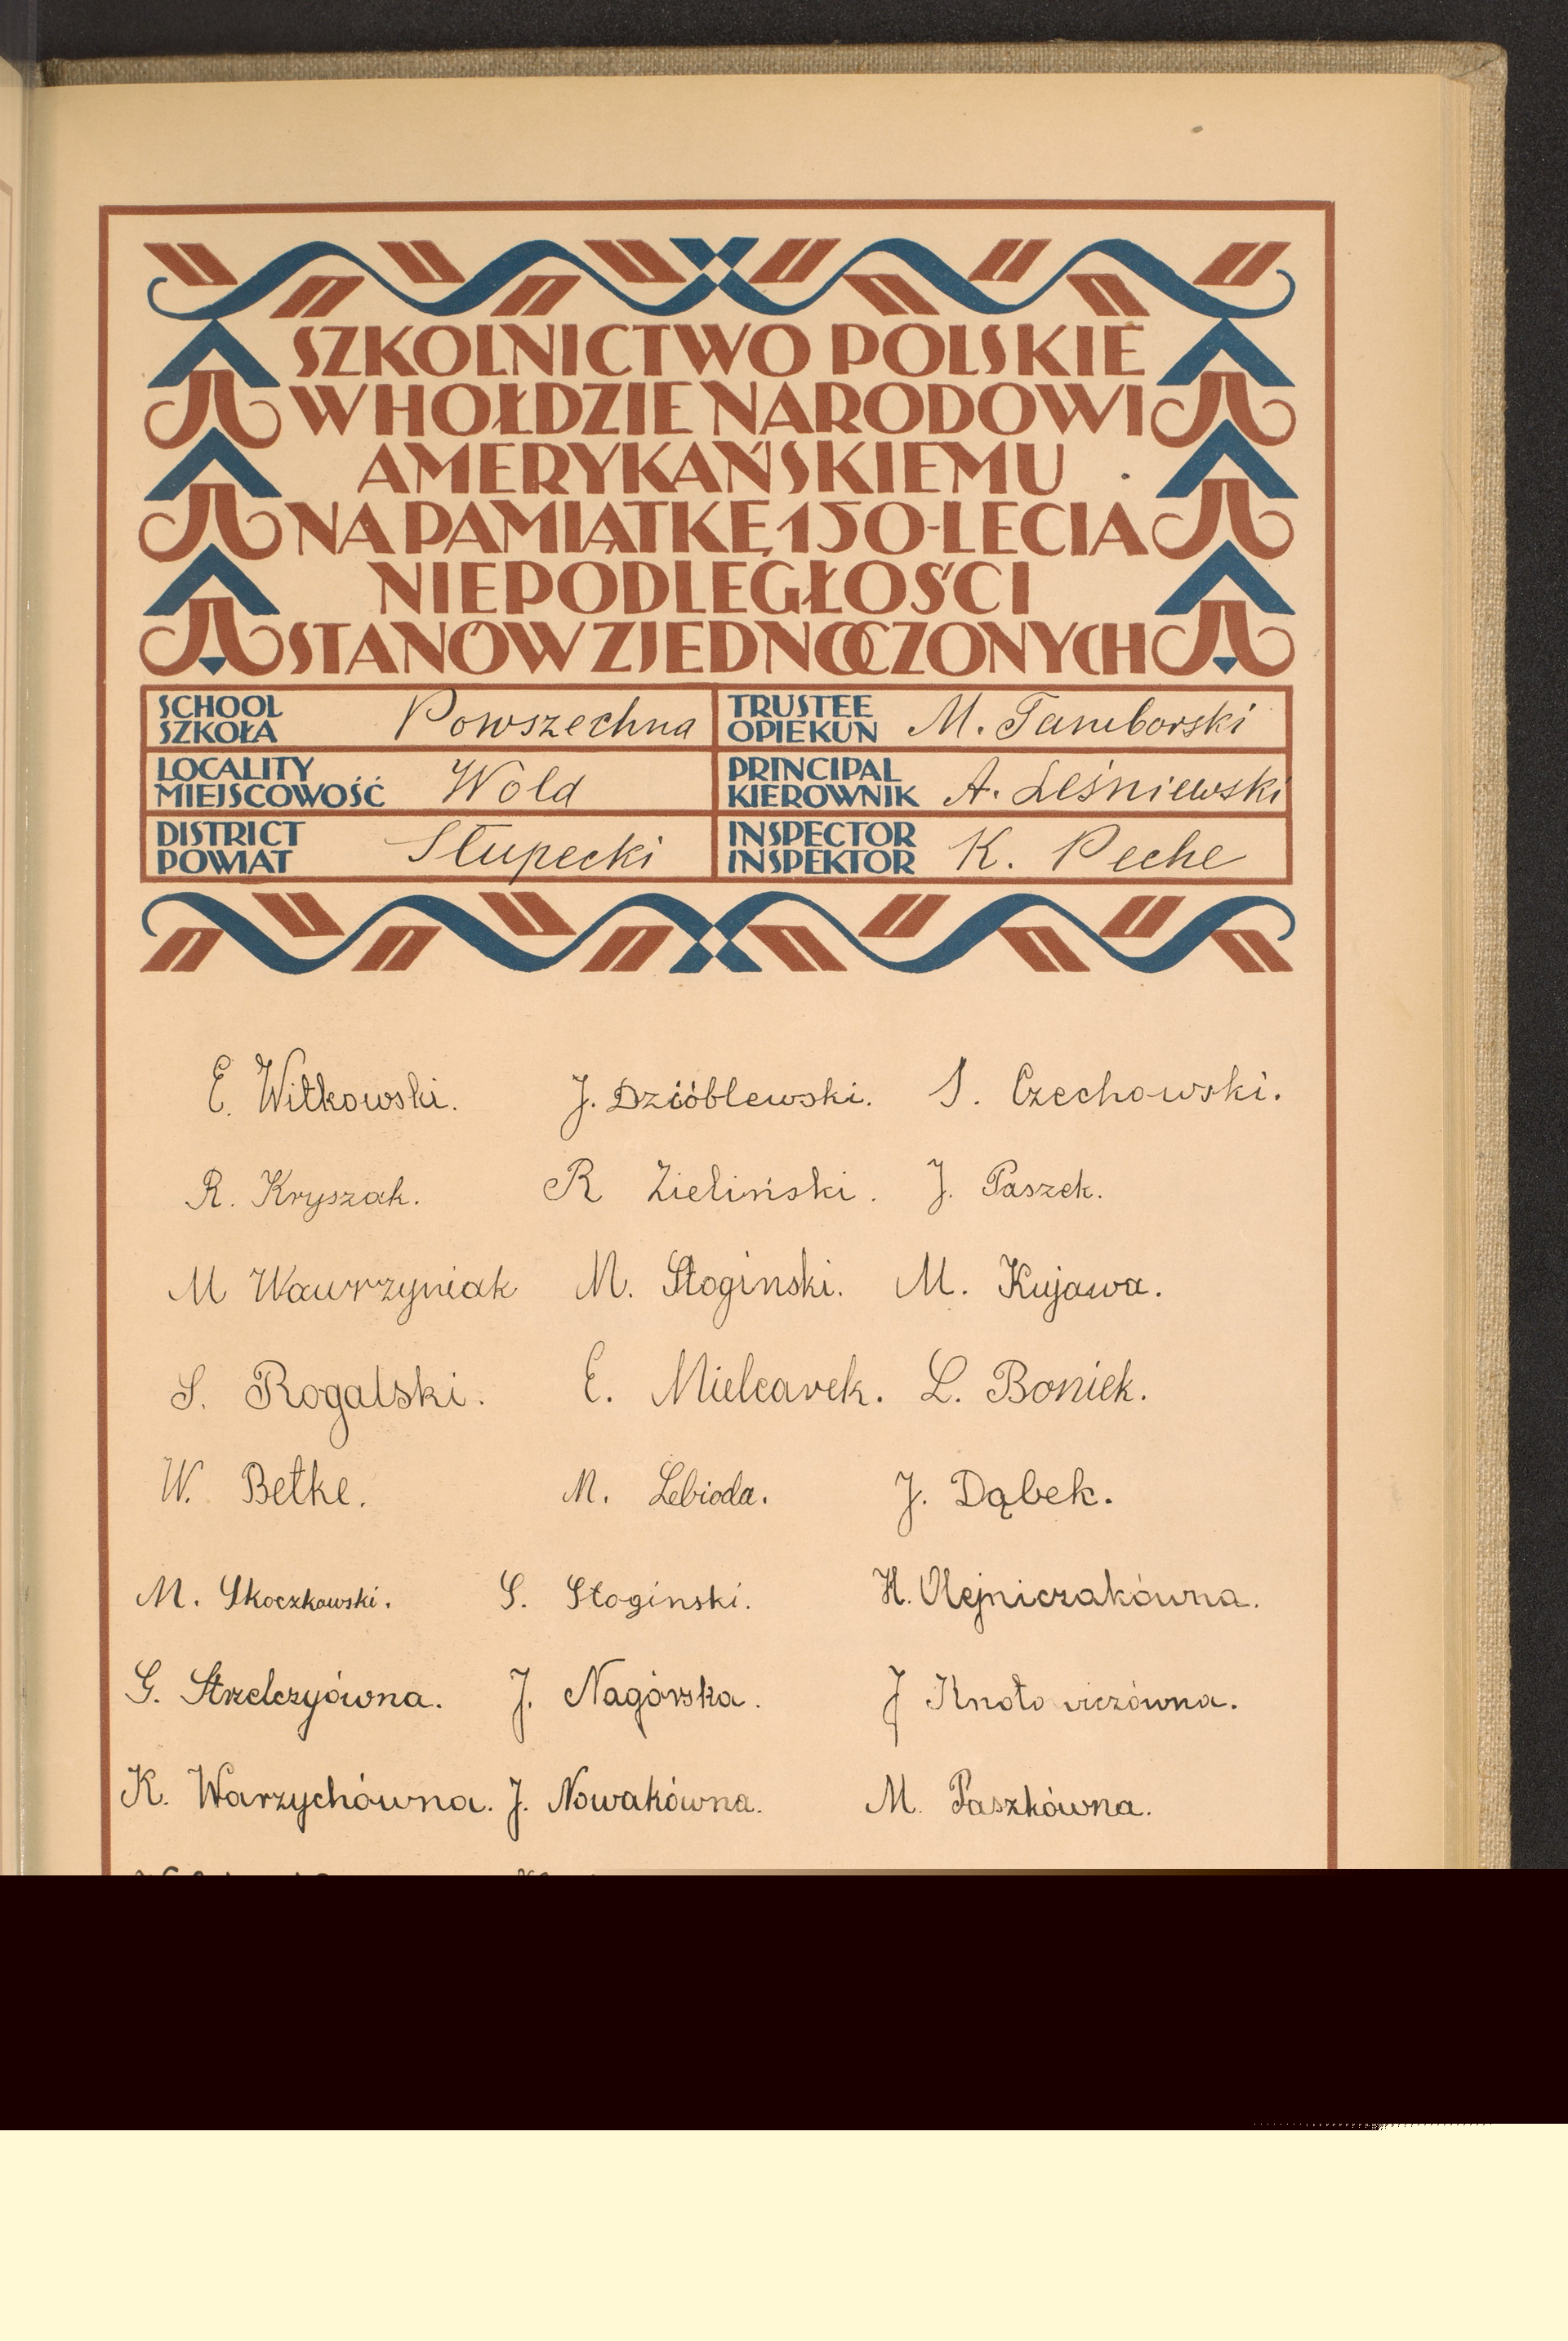 SZKOLNICTWO POLSKIE
W HOŁDZIE NARODOWI
AMERYKAŃSKIEMU
NA PAMIĄTKĘ 150-LECIA
NIEPODLEGŁOŚCI
STANÓW ZJEDNOCZONYCH
SCHOOL
SZKOŁA Powszechna
TRUSTEE
OPIEKUN M. Tamborski
LOCALITY
MIEJSCOWOŚĆ Wola
PRINCIPAL
KIEROWNIK A. Leśniewski
DISTRICT
POWIAT Słupecki
INSPECTOR
INSPEKTOR K. Peche
E. Witkowski. J. Dzióblewski. S. Czechowski.
R. Kryszak. R Zieliński. J. Paszek.
M Wawrzyniak M. Stoginski. M. Kujawa.
S. Rogalski. E. Mielcarek. L. Boniek.
W. Betke. M. Lebioda. J. Dąbek.
M. Skoczkowski. S. Stoginski. H. Olejniczakówna.
G. Strzelczyówna. J. Nagórska. J Knotowiczówna.
K. Warzychówna. J. Nowakówna. M. Paszkówna.